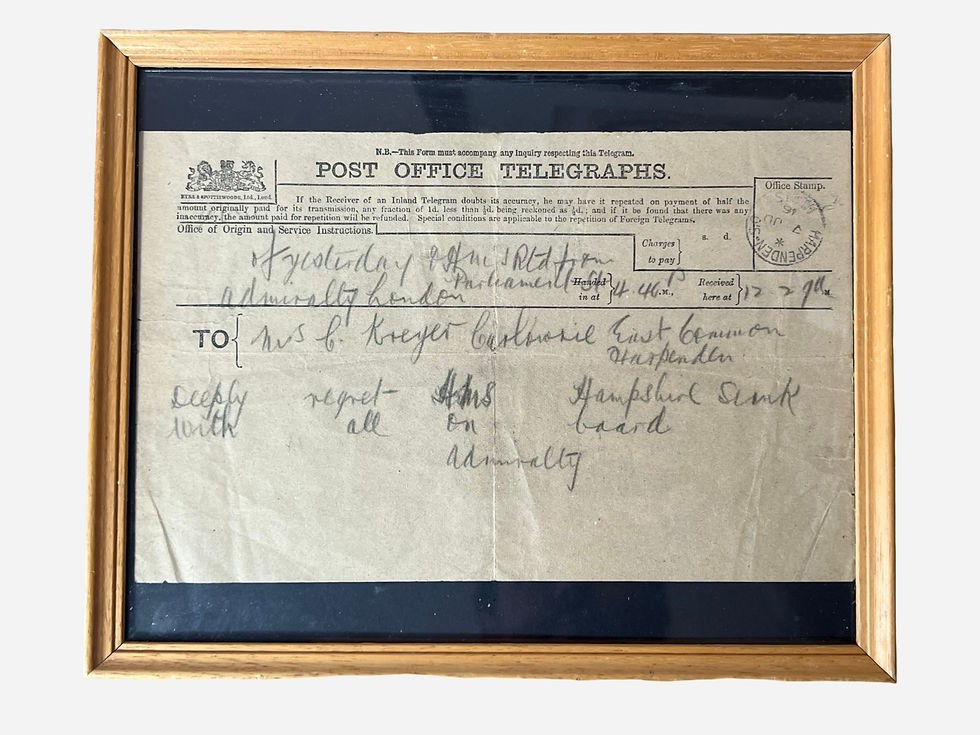 N.B.—This Form must accompany any inquiry respecting this Telegram.
POST OFFICE TELEGRAPHS.
EYRE & SPOTTISWOODE, Ltd., Lond.
If the Receiver of an Inland Telegram doubts its accuracy, he may have it repeated on payment of half the
amount originally paid for its transmission, any fraction of 1d. less than ½d. being reckoned as ½d.; and if it be found that there was any
inaccuracy, the amount paid for repetition will be refunded. Special conditions are applicable to the repetition of Foreign Telegrams.
Office Stamp.
HARPENDEN
Office of Origin and Service Instructions.
Charges
to pay
s. d.
of yesterday OHMS Rtd from
Parliament St
Admiralty London
Handed
in at
4.46 P M.,
Received
here at
12.29
M
TO
Mrs C. Kreyer East Common
Harpenden
Deeply regret HMS Hampshire Sunk
with all on board
Admiralty